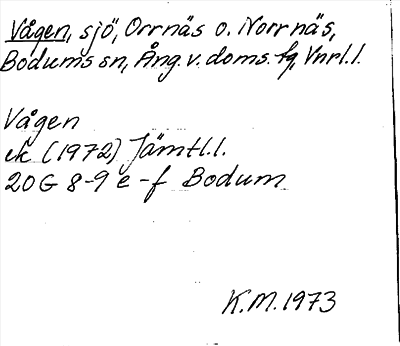 Vågen, sjö, Orrnäs o. Norrnäs,
Bodums sn, Ång. v. doms. fg, Vnrl.l.
Vågen
ek (1972) Jämtl.l.
20G 8-9 e-f Bodum
K.M. 1973